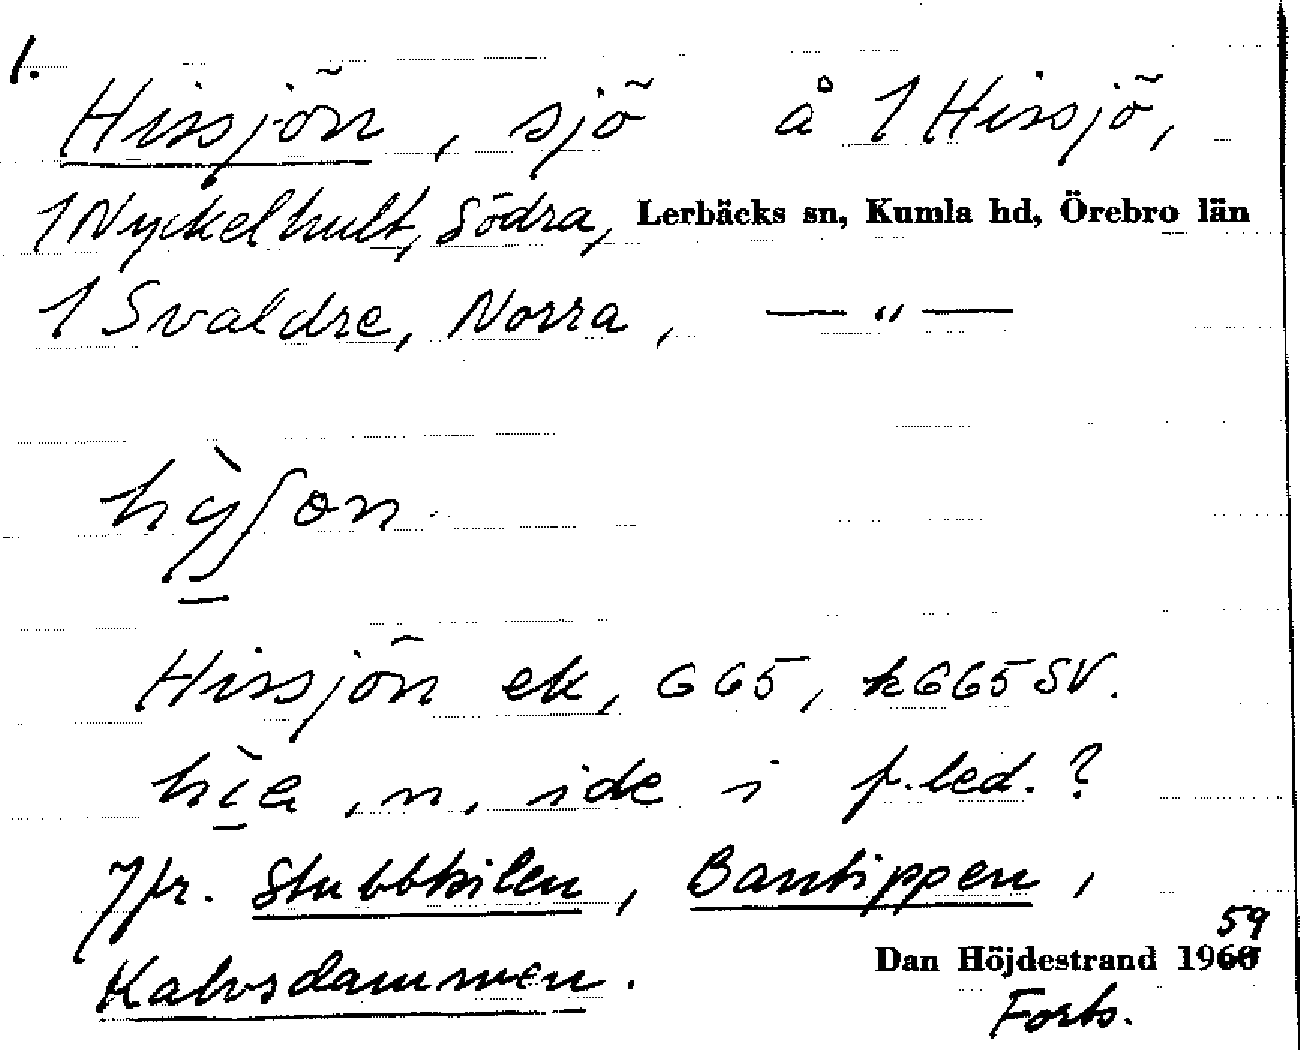 1.
Hissjön, sjö å 1 Hissjö,
1 Nyckelhult, Södra, Lerbäcks sn, Kumla hd, Örebro län
1 Svaldre, Norra, — " —
Hissjön ek, G65, kG65SV.
, n, ide i f.led.?
Jfr. Stubbkilen, Bantippen,
Kalvsdammen.
59
Dan Höjdestrand 1960
Forts.